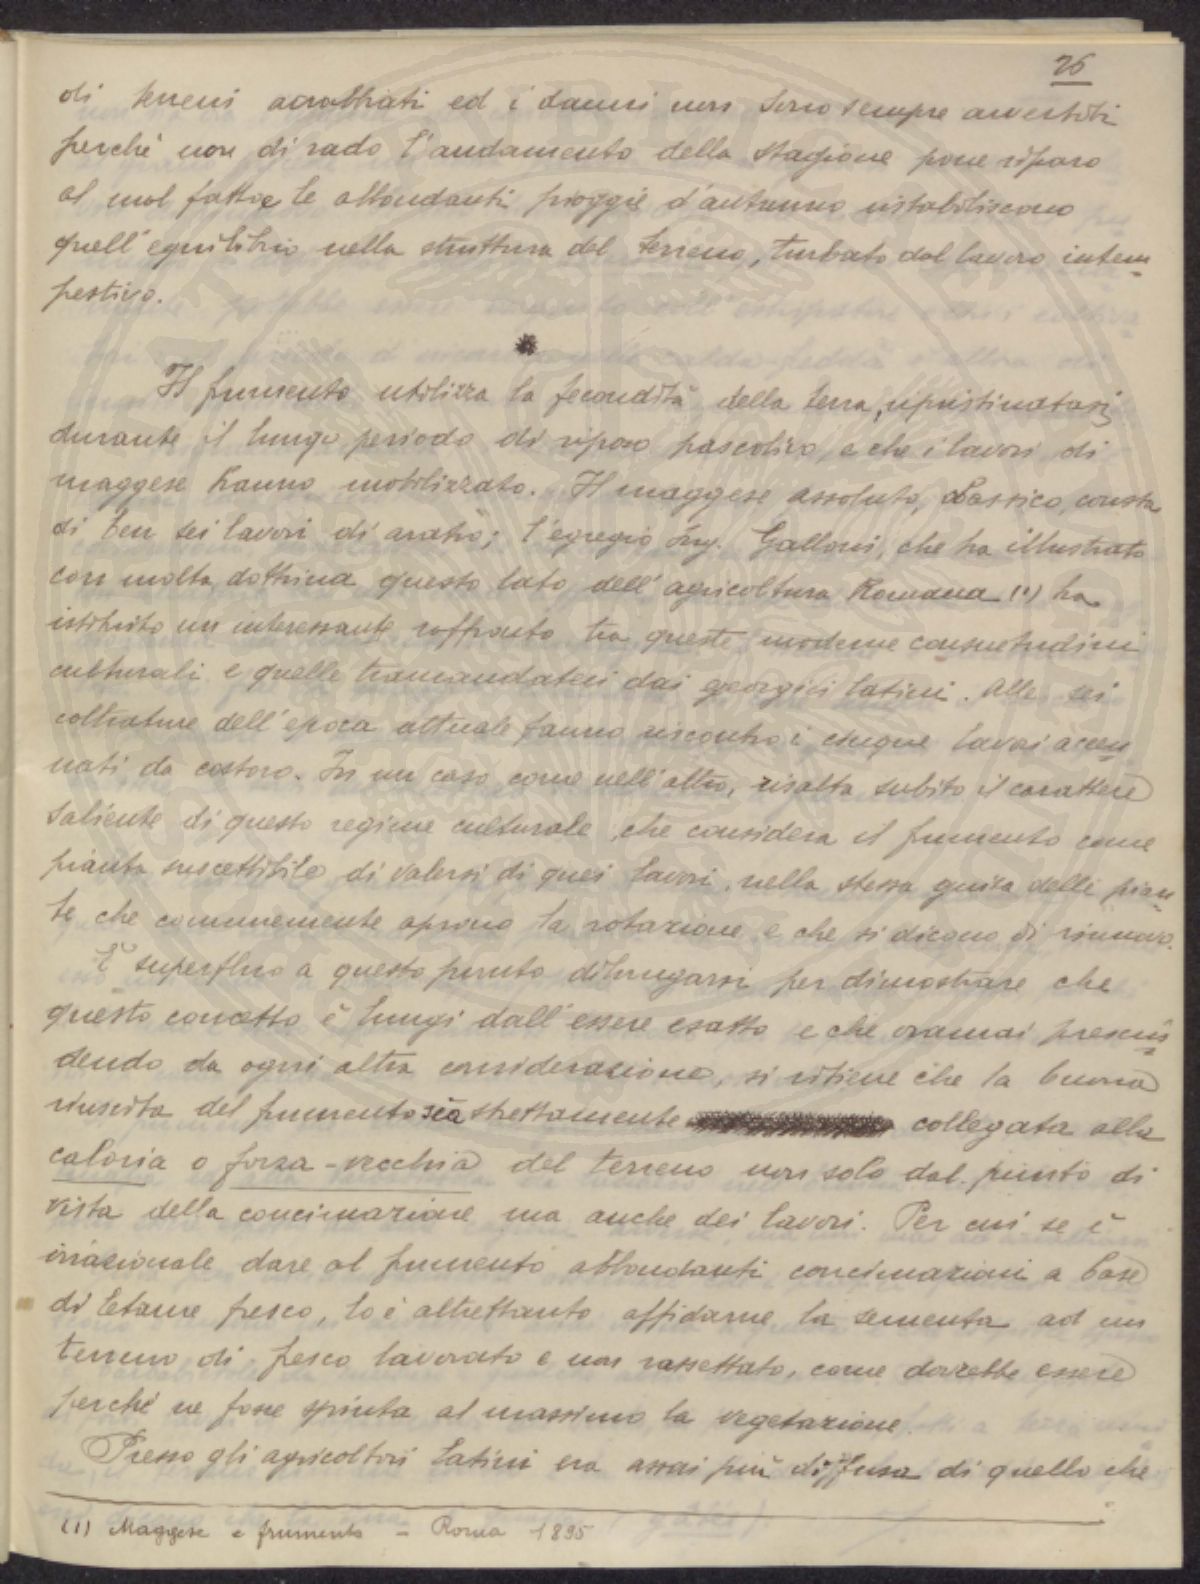 26
di terreni acrobatrati ed i danni non sono sempre avvertiti
perchè non di rado l'andamento della stagione pone riparo
al mal fatto e le abbondanti pioggie d'autunno ristabiliscono
quell'equilibrio nella struttura del terreno, turbato dal lavoro intem
pestivo.
*
Il frumento utilizza la fecondità della terra, ripristinatasi
durante il lungo periodo di riposo pascolivo, e che i lavori di
maggese hanno mobilizzato. Il maggese assoluto, classico, consta
di ben sei lavori di aratro; l'egregio Ing. Galloni, che ha illustrato
con molta dottrina questo lato dell'agricoltura Romana (1) ha
istituito un interessante raffronto tra queste moderne consuetudini
culturali e quelle tramandateci dai georgici latini. Alle sei
coltrature dell'epoca attuale fanno riscontro i cinque lavori accen
nati da costoro. In un caso come nell'altro, risalta subito il carattere
saliente di questo regime culturale, che considera il frumento come
pianta suscettibile di valersi di quei lavori, nella stessa guisa delle pian
te che comunemente aprono la rotazione e che si dicono di rinnovo.
È superfluo a questo punto dilungarsi per dimostrare che
questo concetto è lungi dall'essere esatto e che oramai prescin
dendo da ogni altra considerazione, si ritiene che la buona
riuscita del frumento sia strettamente collegata alla
caloria o forza-vecchia del terreno non solo dal punto di
vista della concimazione ma anche dei lavori. Per cui se è
irrazionale dare al frumento abbondanti concimazioni a base
di letame fresco, lo è altrettanto affidarne la sementa ad un
terreno di fresco lavorato e non rassettato, come dovrebbe essere
perchè ne fosse spinta al massimo la vegetazione.
Presso gli agricoltori latini era assai più diffusa di quello che
(1) Maggese e frumento - Roma 1895